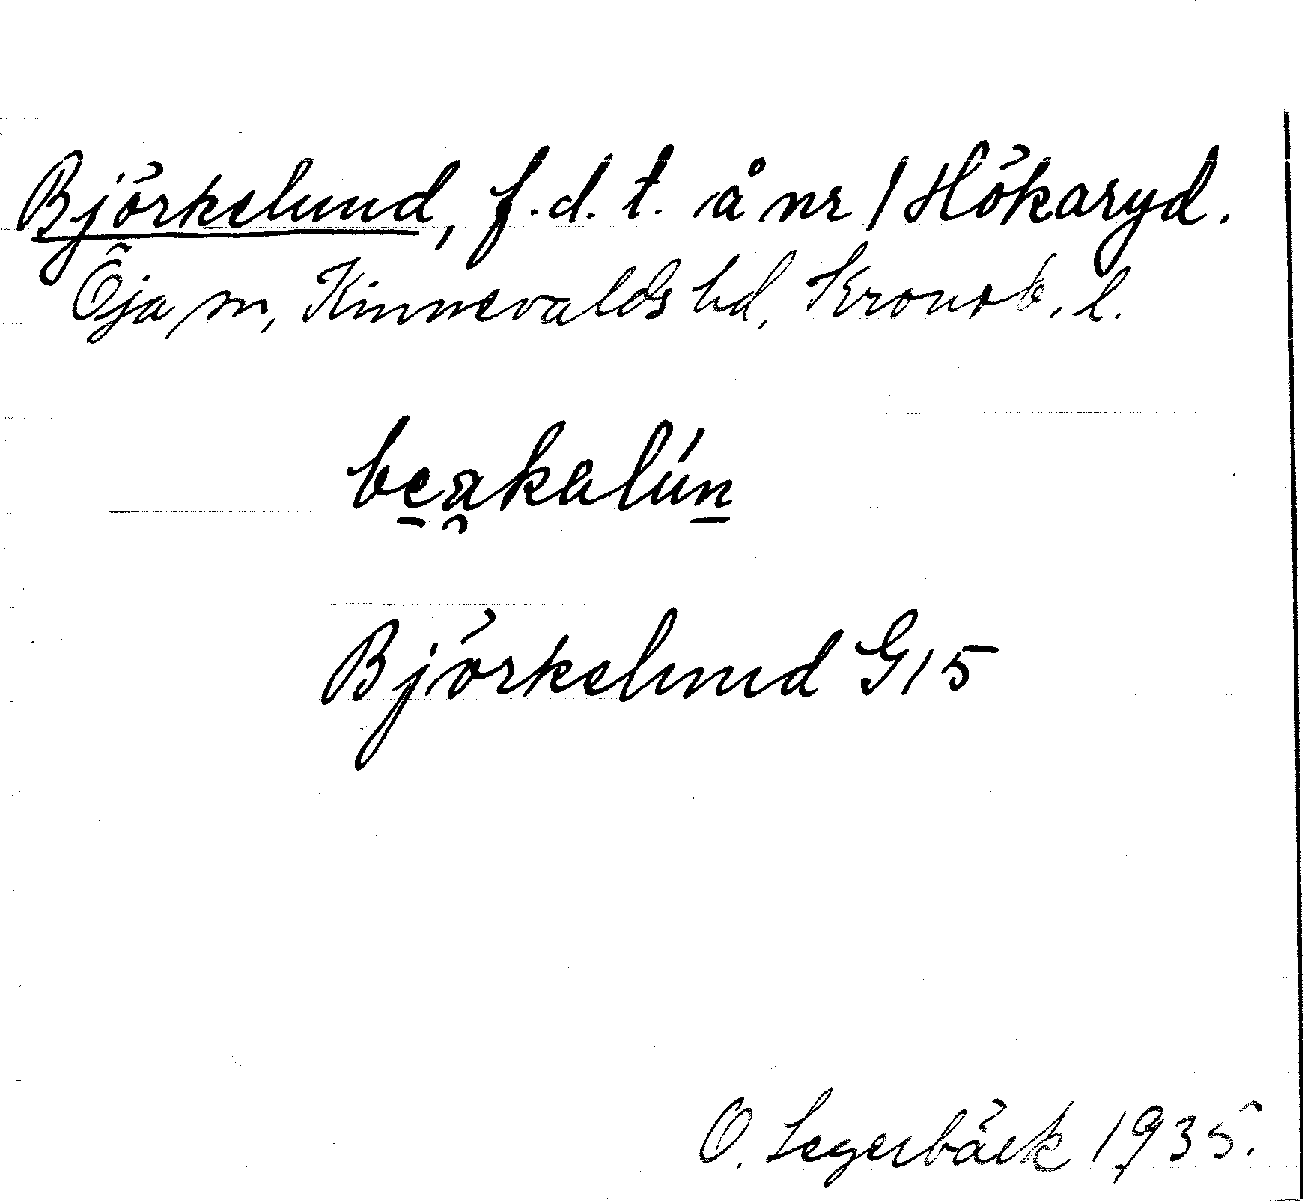 Björkelund, f.d.t. å nr 1 Hökaryd.
Öja sn, Kinnevalds hd, Kronob. l.
be̠a̯kalún̠
Björkelund G15
O. Segerbäck 1935.